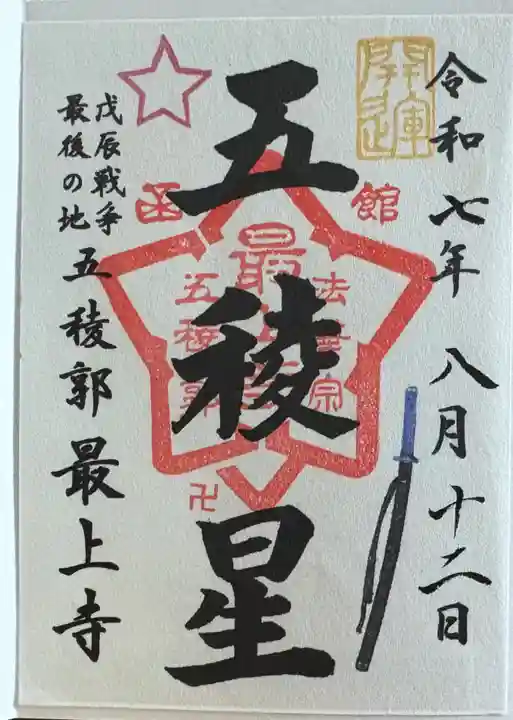 令和七年 八月十二日
開運
五稜星
函館
法華宗
最上寺
五稜郭
卍
戊辰戦争
最後の地
五稜郭 最上寺